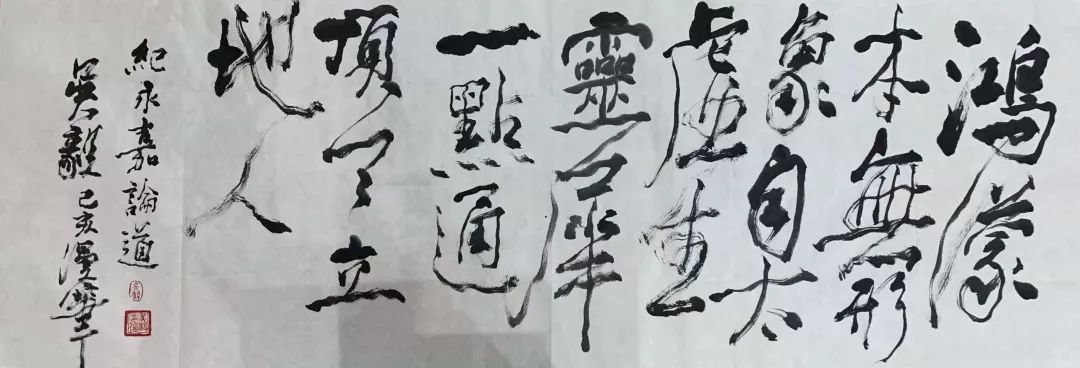 鴻濛
本無形
象自太
虛生
靈犀
一點通
頂天立
地人
紀永嘉論道
吳 己亥漫筆